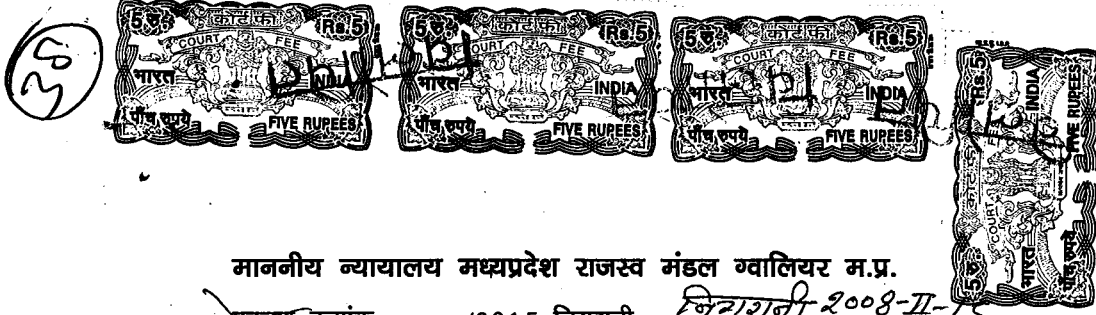 5 रु. कोर्ट फी Rs.5
COURT FEE
भारत INDIA
पाँच रुपये FIVE RUPEES
5 रु. कोर्ट फी Rs.5
COURT FEE
भारत INDIA
पाँच रुपये FIVE RUPEES
5 रु. कोर्ट फी Rs.5
COURT FEE
भारत INDIA
पाँच रुपये FIVE RUPEES
5 रु. कोर्ट फी Rs.5
COURT FEE
भारत INDIA
पाँच रुपये FIVE RUPEES
माननीय न्यायालय मध्यप्रदेश राजस्व मंडल ग्वालियर म.प्र.
निगरानी 2008-II-15